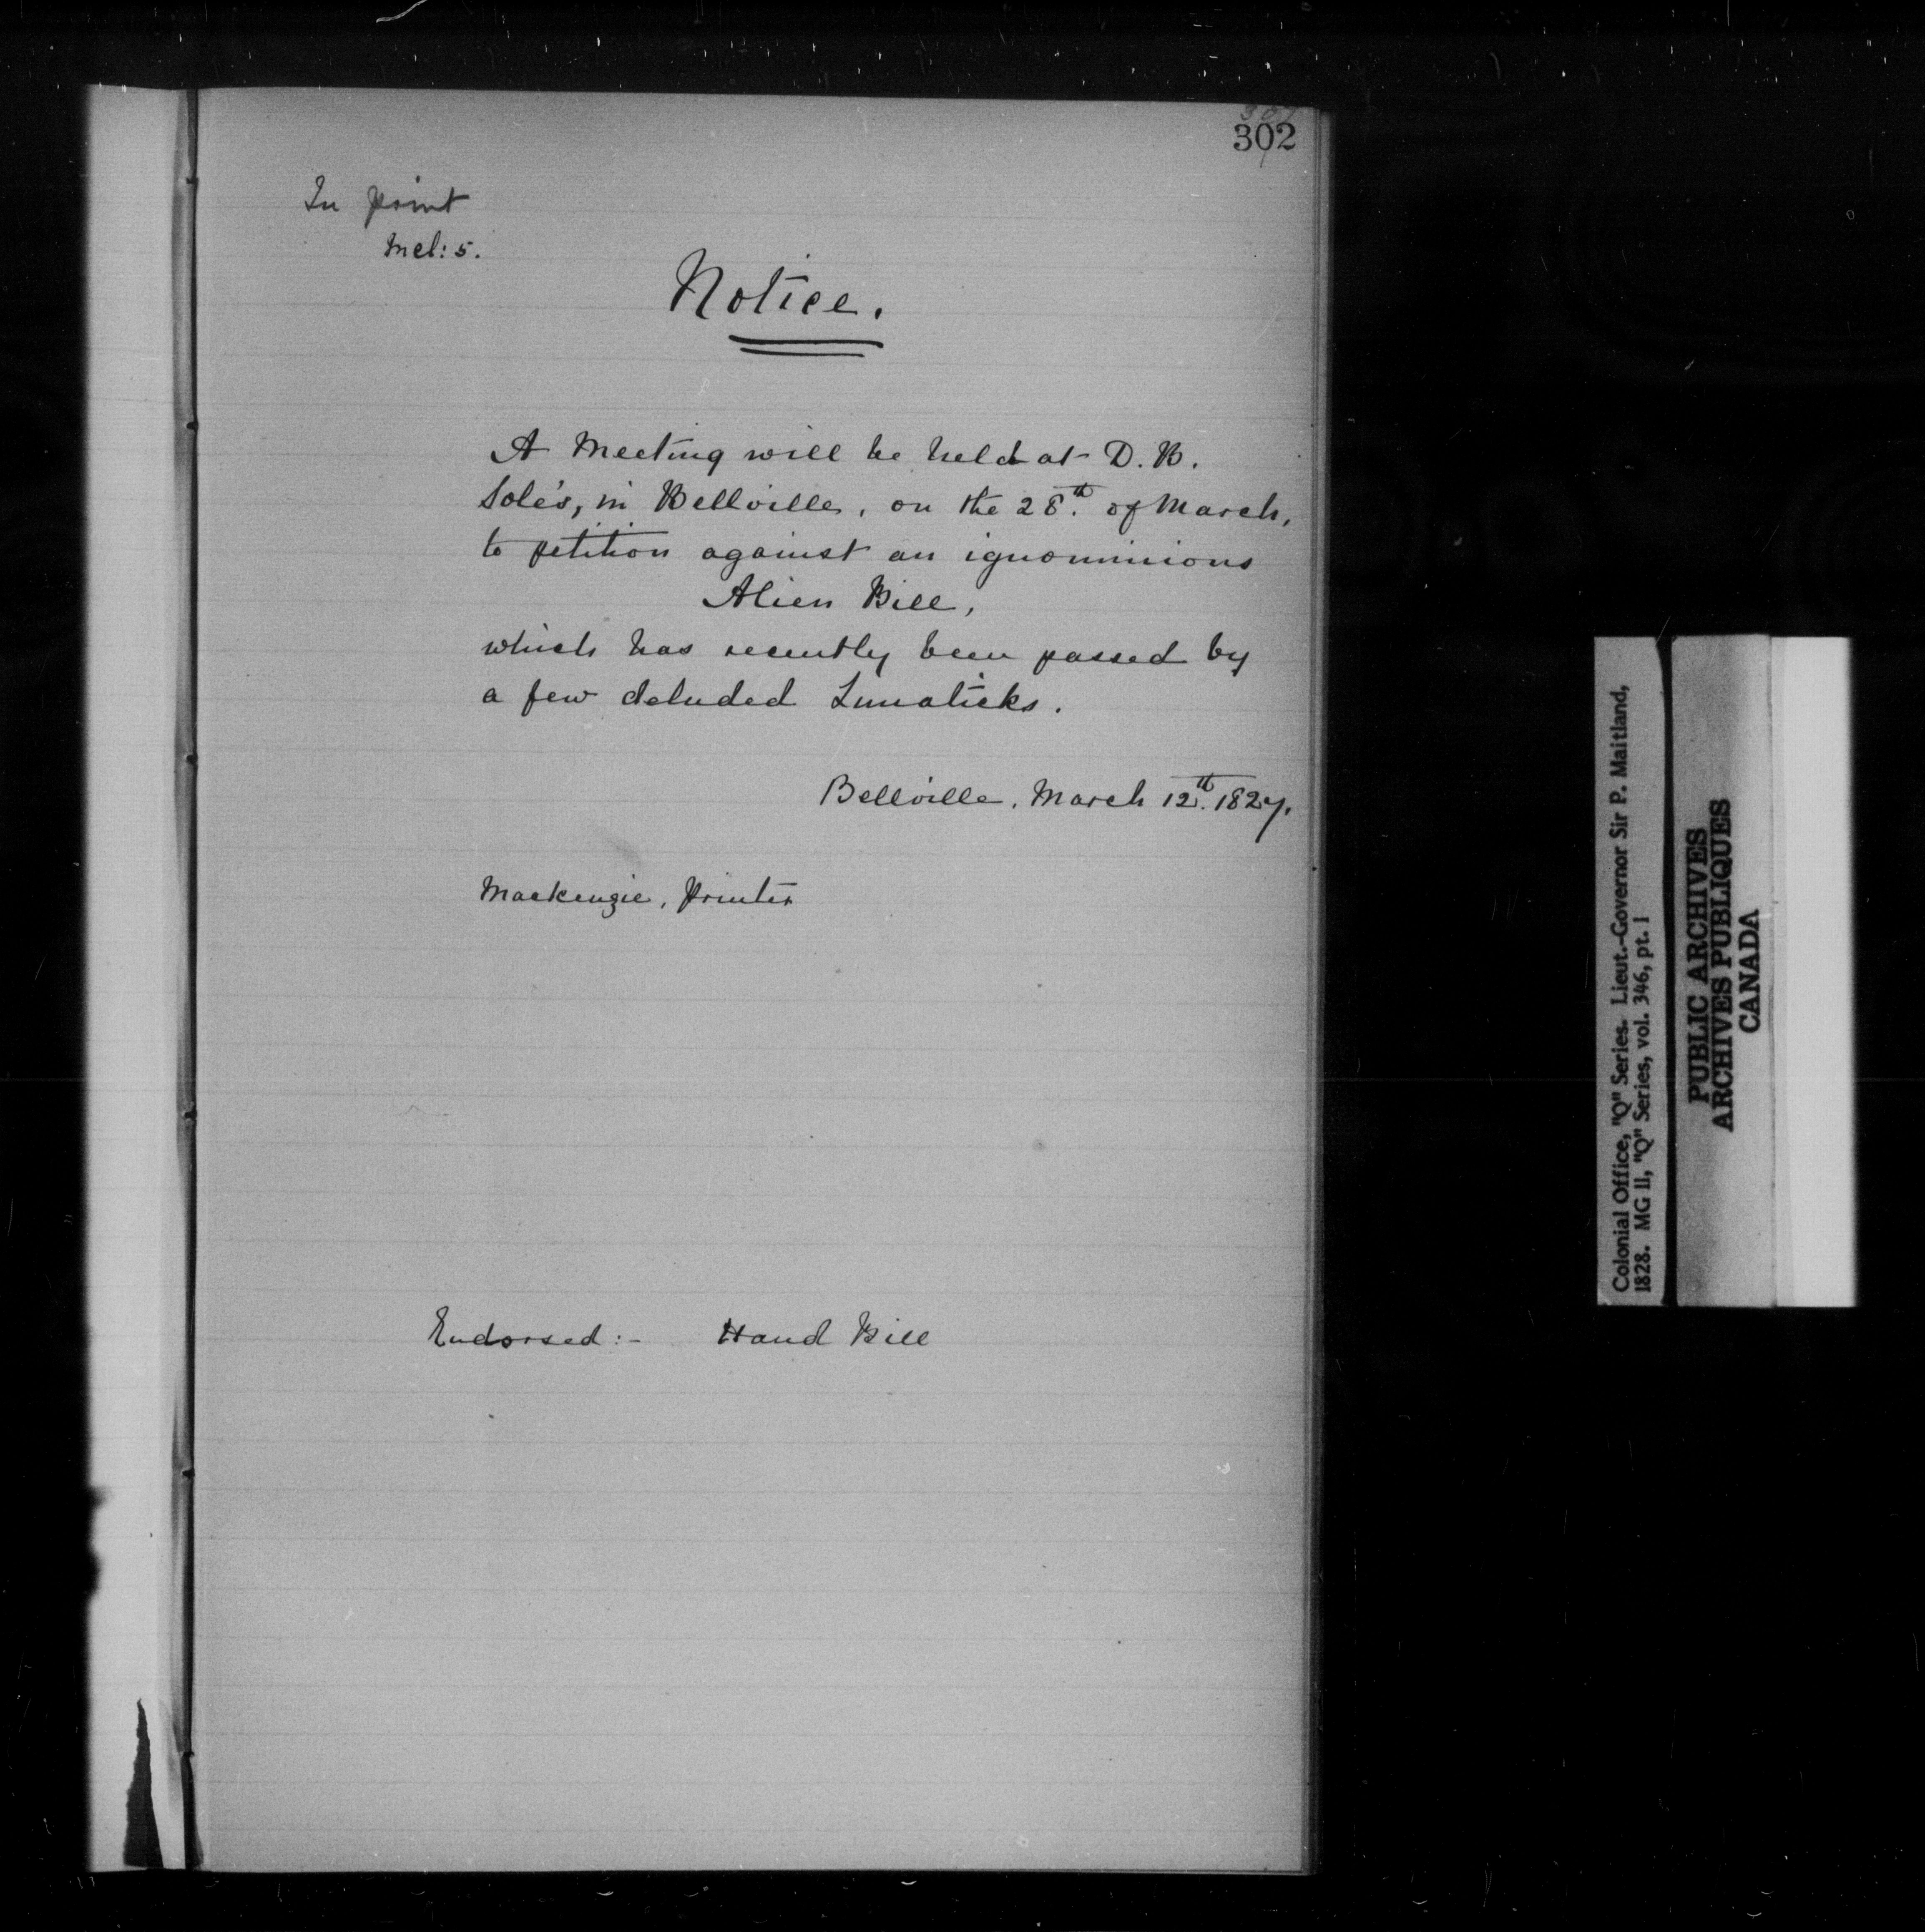 302
In print
Incl: 5.
Notice.
A Meeting will be held at D. B.
Sole's, in Bellville, on the 28th. of March,
to petition against an ignominious
Alien Bill,
which has recently been passed by
a few deluded Lunaticks.
Bellville, March 12th. 1827.
Mackenzie, Printer
Endorsed:- Hand Bill
Colonial Office, "Q" Series. Lieut.-Governor Sir P. Maitland,
1828. MG 11, "Q" Series, vol. 346, pt. 1
PUBLIC ARCHIVES
ARCHIVES PUBLIQUES
CANADA